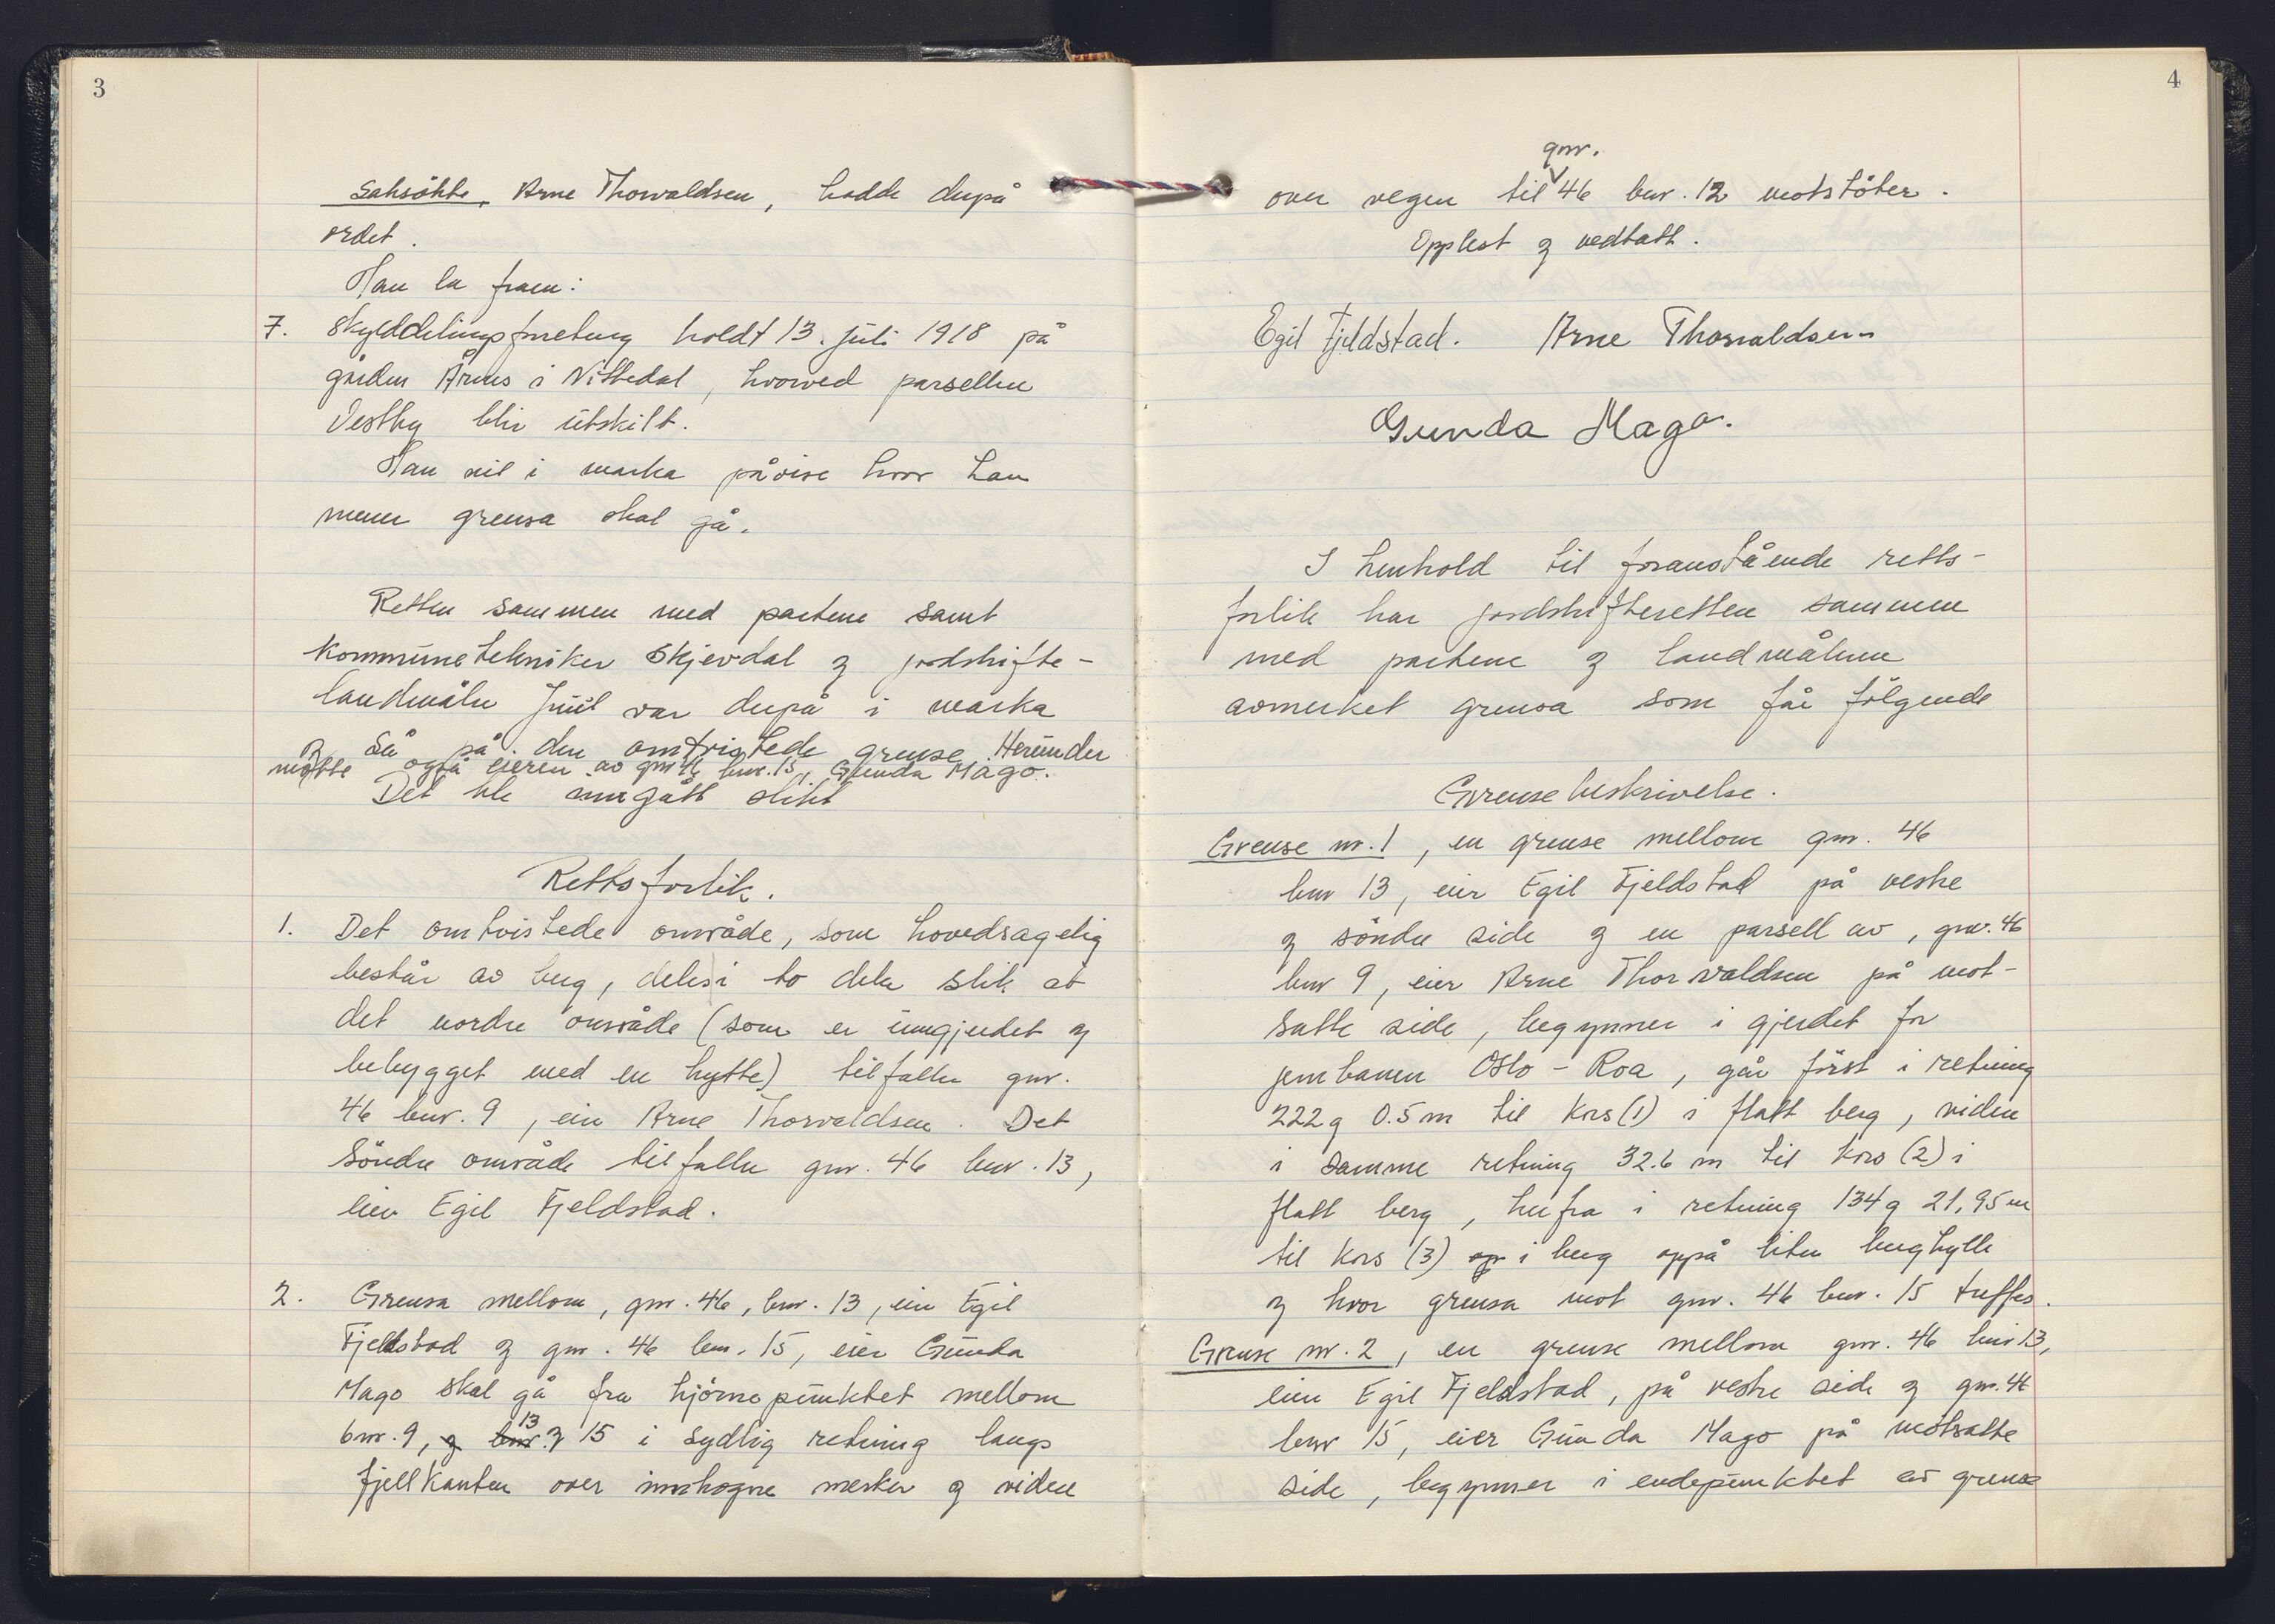 3
Saksökte, Arne Thorvaldsen, hadde derpå
ordet.
Han la fram:
7. Skylddelingsforretning holdt 13. juli 1918 på
gården Årnes i Nittedal, hvorved parsellen
Vestby blir utskilt.
Han vil i marka påvise hvor han
mener grensa skal gå.
Retten sammen med partene samt
kommunetekniker Skjevdal og jordskifte-
landmåler Juul var derpå i marka
og så på den omtvistede grense. Herunder
møtte også eieren av gnr 46 bnr. 15, Gunda Mago.
Det ble inngått slikt
Rettsforlik.
1. Det omtvistede område, som hovedsagelig
består av berg, deles i to deler slik at
det nordre område (som er inngjerdet og
bebygget med en hytte) tilfaller gnr.
46 bnr. 9, eier Arne Thorvaldsen. Det
söndre område tilfaller gnr. 46 bnr. 13,
eier Egil Fjeldstad.
2. Grensa mellom, gnr. 46, bnr. 13, eier Egil
Fjeldstad og gnr. 46 bnr. 15, eier Gunda
Mago skal gå fra hjörnepunktet mellom
bnr. 9, og bnr. 13 og 15 i sydlig retning langs
fjellkanten over innhogne merker og videre
4
over vegen til gnr. 46 bnr. 12 motstöter.
Opplest og vedtatt.
Egil Fjeldstad. Arne Thorvaldsen
Gunda Mago.
I henhold til foranstående retts-
forlik har jordskifteretten sammen
med partene og landmåleren
avmerket grensa som får fölgende
Grensebeskrivelse.
Grense nr. 1, en grense mellom gnr. 46
bnr 13, eier Egil Fjeldstad på vestre
og söndre side og en parsell av, gnr. 46
bnr 9, eier Arne Thorvaldsen på mot-
satte side, begynner i gjerdet for
jernbanen Oslo - Roa, går först i retning
222g 0.5 m til kors (1) i flatt berg, videre
i samme retning 32.6 m til kors (2) i
flatt berg, herfra i retning 134g 21,95 m
til kors (3) op i berg oppå liten berghylle
og hvor grensa mot gnr. 46 bnr. 15 treffes.
Grense nr. 2, en grense mellom gnr. 46 bnr 13,
eier Egil Fjeldstad, på vestre side og gnr. 46
bnr 15, eier Gunda Mago på motsatte
side, begynner i endepunktet av grense